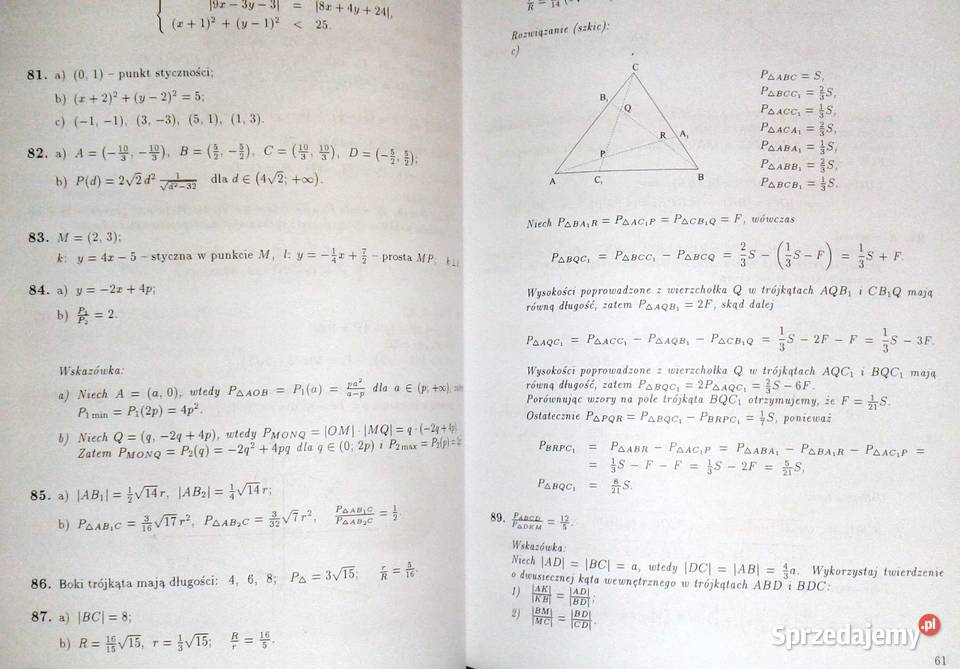 |9x − 3y − 3| = |8x + 4y + 24|,
(x + 1)² + (y − 1)² < 25.
81. a) (0, 1) – punkt styczności;
b) (x + 2)² + (y − 2)² = 5;
c) (−1, −1), (3, −3), (5, 1), (1, 3).
82. a) A = (−10/3, −10/3), B = (5/2, −5/2), C = (10/3, 10/3), D = (−5/2, 5/2);
b) P(d) = 2√2 d² 1/√(d²−32) dla d ∈ (4√2; +∞).
83. M = (2, 3);
k: y = 4x − 5 – styczna w punkcie M, l: y = −1/4 x + 7/2 – prosta MP,
84. a) y = −2x + 4p;
b) P₁/P₂ = 2.
Wskazówka:
a) Niech A = (a, 0), wtedy P△AOB = P₁(a) = pa²/(a−p) dla a ∈ (p; +∞),
P₁ min = P₁(2p) = 4p².
b) Niech Q = (q, −2q + 4p), wtedy PMONQ = |OM| · |MQ| = q · (−2q+4p)
Zatem PMONQ = P₂(q) = −2q² + 4pq dla q ∈ (0; 2p) i P₂ max = P₂(p) =
85. a) |AB₁| = 1/2 √14 r, |AB₂| = 1/4 √14 r;
b) P△AB₁C = 3/16 √17 r², P△AB₂C = 3/32 √7 r², P△AB₁C/P△AB₂C = 1/2
86. Boki trójkąta mają długości: 4, 6, 8; P△ = 3√15; r/R = 5/16.
87. a) |BC| = 8;
b) R = 16/15 √15, r = 1/3 √15; R/r = 16/5.
Rozwiązanie (szkic):
c)
C
B₁
Q
R
A₁
P
A
C₁
B
P△ABC = S,
P△BCC₁ = 2/3 S,
P△ACC₁ = 1/3 S,
P△ACA₁ = 2/3 S,
P△ABA₁ = 1/3 S,
P△ABB₁ = 2/3 S,
P△BCB₁ = 1/3 S.
Niech P△BA₁R = P△AC₁P = P△CB₁Q = F, wówczas
P△BQC₁ = P△BCC₁ − P△BCQ = 2/3 S − (1/3 S − F) = 1/3 S + F.
Wysokości poprowadzone z wierzchołka Q w trójkątach AQB₁ i CB₁Q mają
równą długość, zatem P△AQB₁ = 2F, skąd dalej
P△AQC₁ = P△ACC₁ − P△AQB₁ − P△CB₁Q = 1/3 S − 2F − F = 1/3 S − 3F.
Wysokości poprowadzone z wierzchołka Q w trójkątach AQC₁ i BQC₁ mają
równą długość, zatem P△BQC₁ = 2P△AQC₁ = 2/3 S − 6F.
Porównując wzory na pole trójkąta BQC₁ otrzymujemy, że F = 1/21 S.
Ostatecznie P△PQR = P△BQC₁ − PBRPC₁ = 1/7 S, ponieważ
PBRPC₁ = P△ABR − P△AC₁P = P△ABA₁ − P△BA₁R − P△AC₁P =
= 1/3 S − F − F = 1/3 S − 2F = 5/21 S,
P△BQC₁ = 8/21 S.
89. PABCD/P△DKM = 12/5.
Wskazówka:
Niech |AD| = |BC| = a, wtedy |DC| = |AB| = 4/3 a. Wykorzystaj twierdzenie
o dwusiecznej kąta wewnętrznego w trójkątach ABD i BDC:
1) |AK|/|KB| = |AD|/|BD|;
2) |BM|/|MC| = |BD|/|CD|.
61
Sprzedajemy.pl